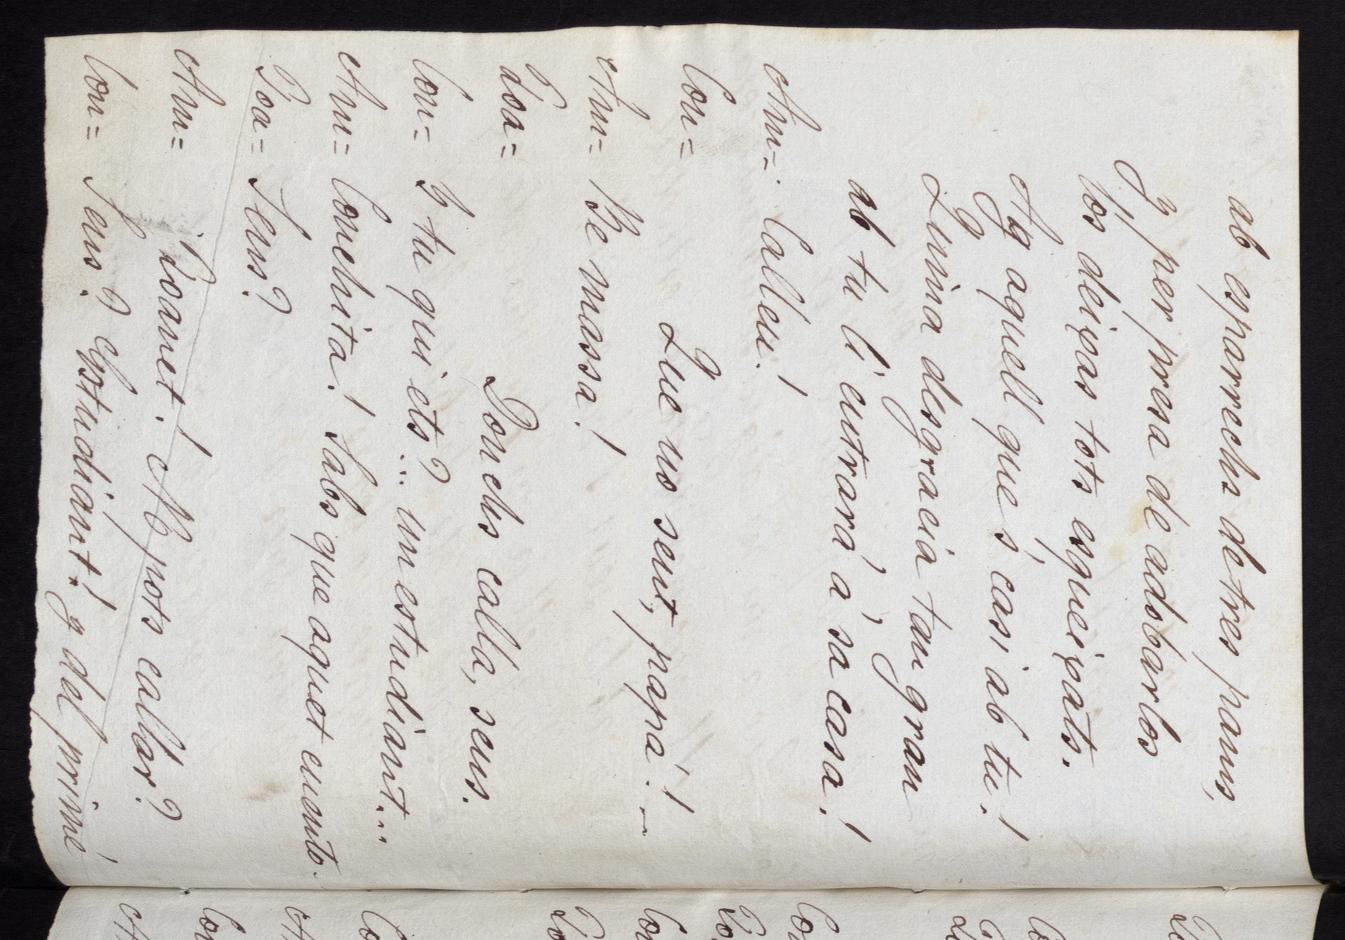 ab esparrechs de tres pams,
y per presa de adobarlos
los deixas tots esqueixats.
Ay aquell que s' casi ab tu!
Quina desgracia tan gran
ab tu li entrará á sa casa!
Am=. Calleu!
Con= Que no sent, papá!
Am= Be massa!
Joa= Donchs calla, seus.
Con= Y tu qui ets?... un estudiant...
Am= Conchita! Sabs que aquet cuento.
Joa= Seus?
Am= Joanet! M pots callar?
Con= Seus? Estudiant! y del primé